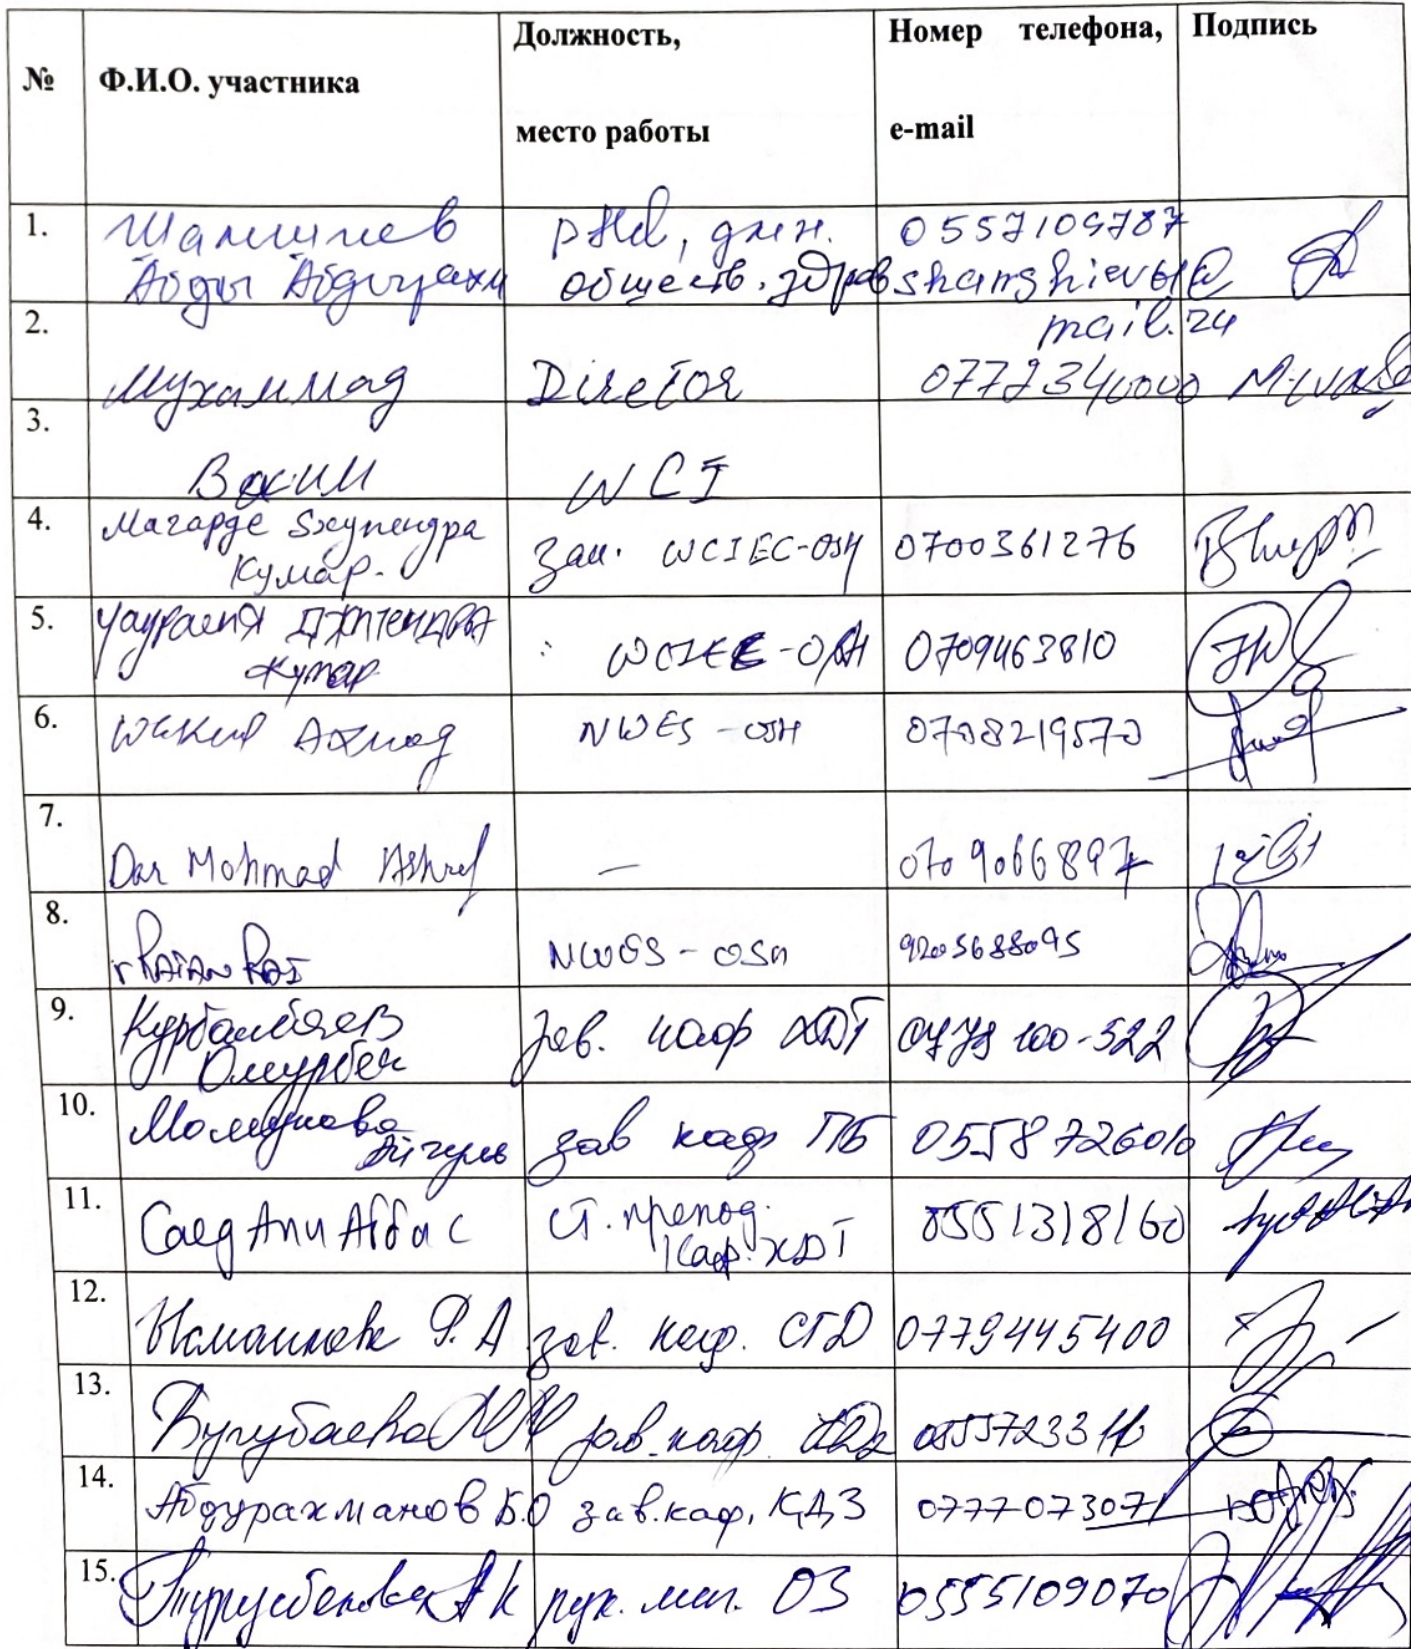 № Ф.И.О. участника Должность, место работы Номер телефона, e-mail Подпись
1. Шамшиев Абды Абдирахм PHd, дмн. обществ. здрав 0557109787 shamshiev61@mail.ru
2. Мухаммад Director 0772340000
3. Вакил WCI
4. Магарде Бхупендра Кумар. Зам. WCIEC-OSH 0700361276
5. Чаурасия Джитендра Кумар WCIEC-OSH 0709463810
6. Ахмад NWES-OSH 0708219570
7. Dar Mohmad Ashraf — 0709066897
8. RATAN RAI NWES-OSH 9205688095
9. Курбанбаев Омурбек Зав. каф ХДТ 100-322
10. Момунова Айгуль зав каф ПБ 0558726010
11. Саед Али Аббас ст. препод. Каф. ХДТ 0551318160
12. Ысмаилов Ф.А зав. каф. СГД 0779445400
13. Бугубаева зав. каф.
14. Абдурахманов Б.О зав.каф. КДЗ 0777073071
15. Турусбекова А К рук. маг. ОЗ 0555109070